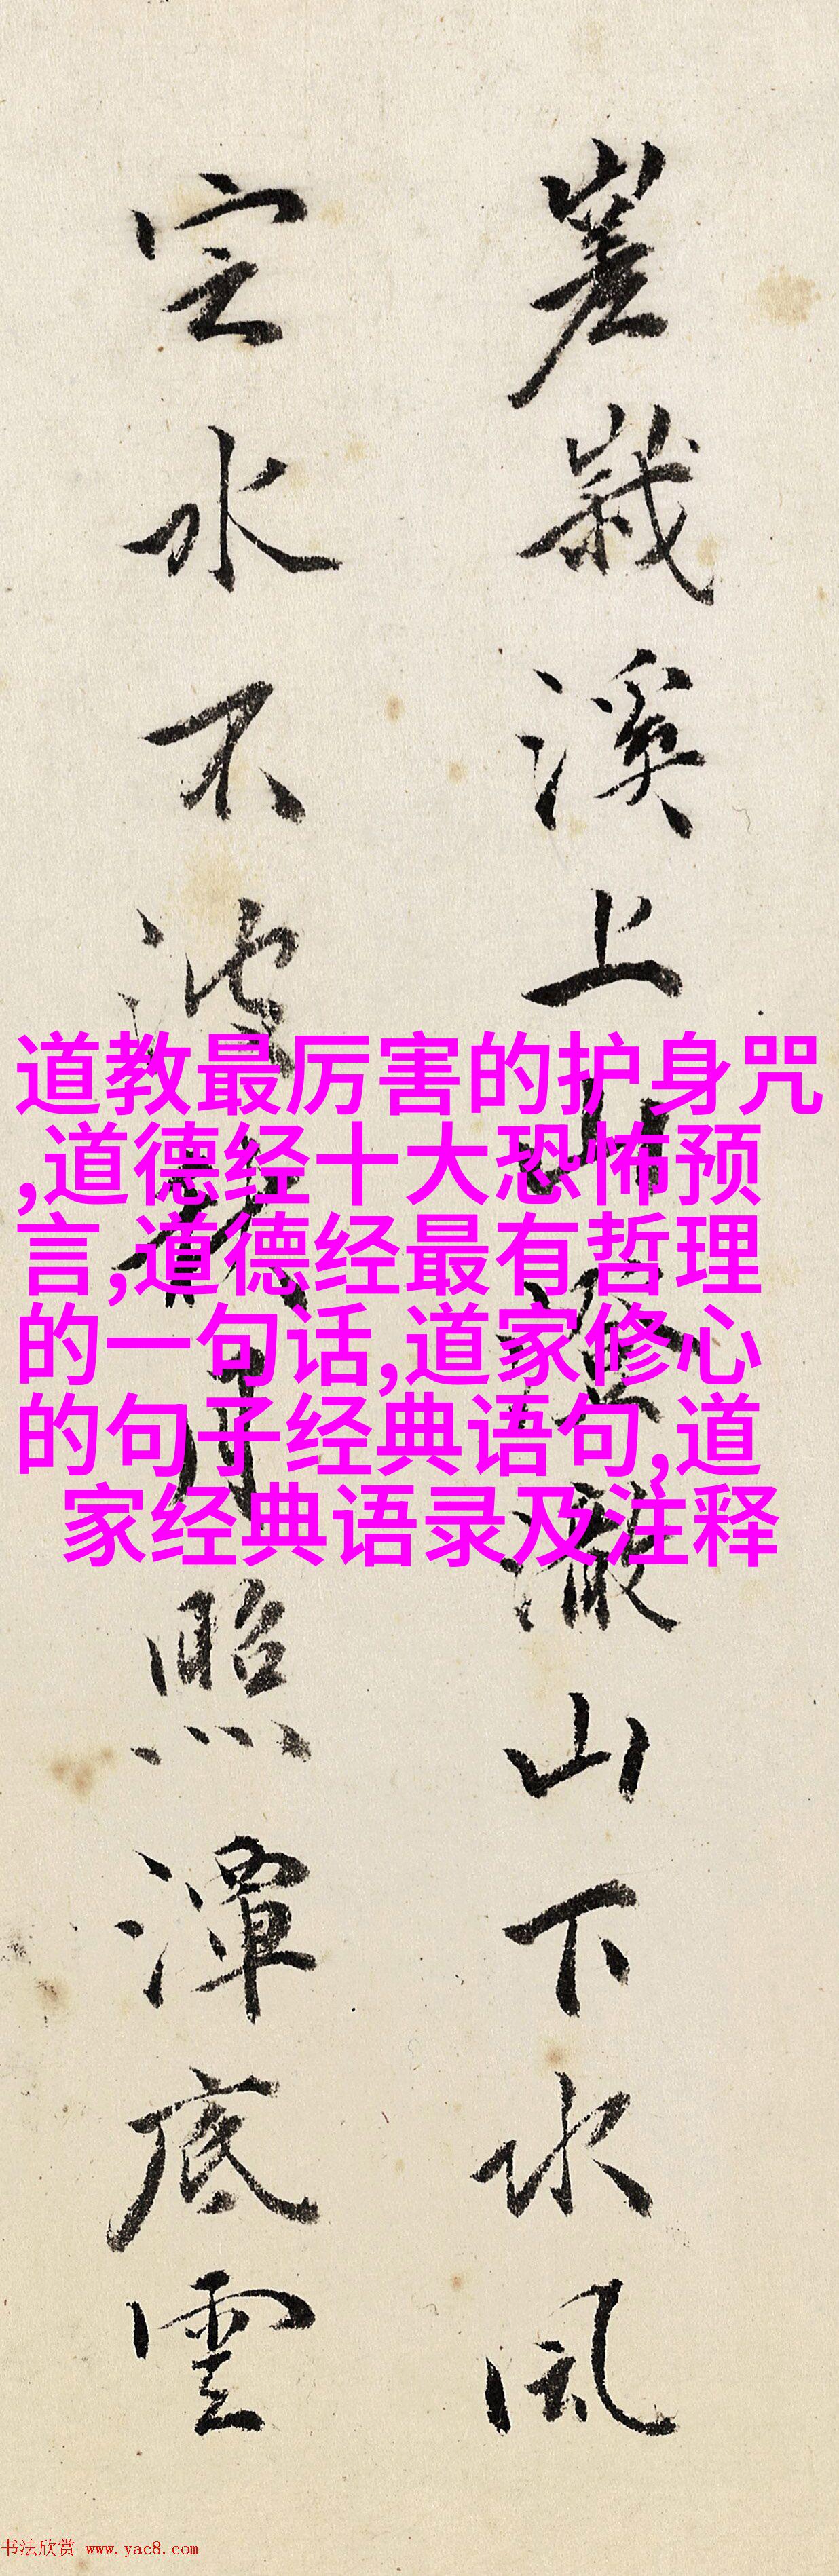 嵳峩溪上山澄澈山下水風
定水不月照潭底雲
道教最厉害的护身咒
,道德经十大恐怖预
言,道德经最有哲理
的一句话,道家修心
的句子经典语句,道
家经典语录及注释
书法欣赏 www.yac8.com